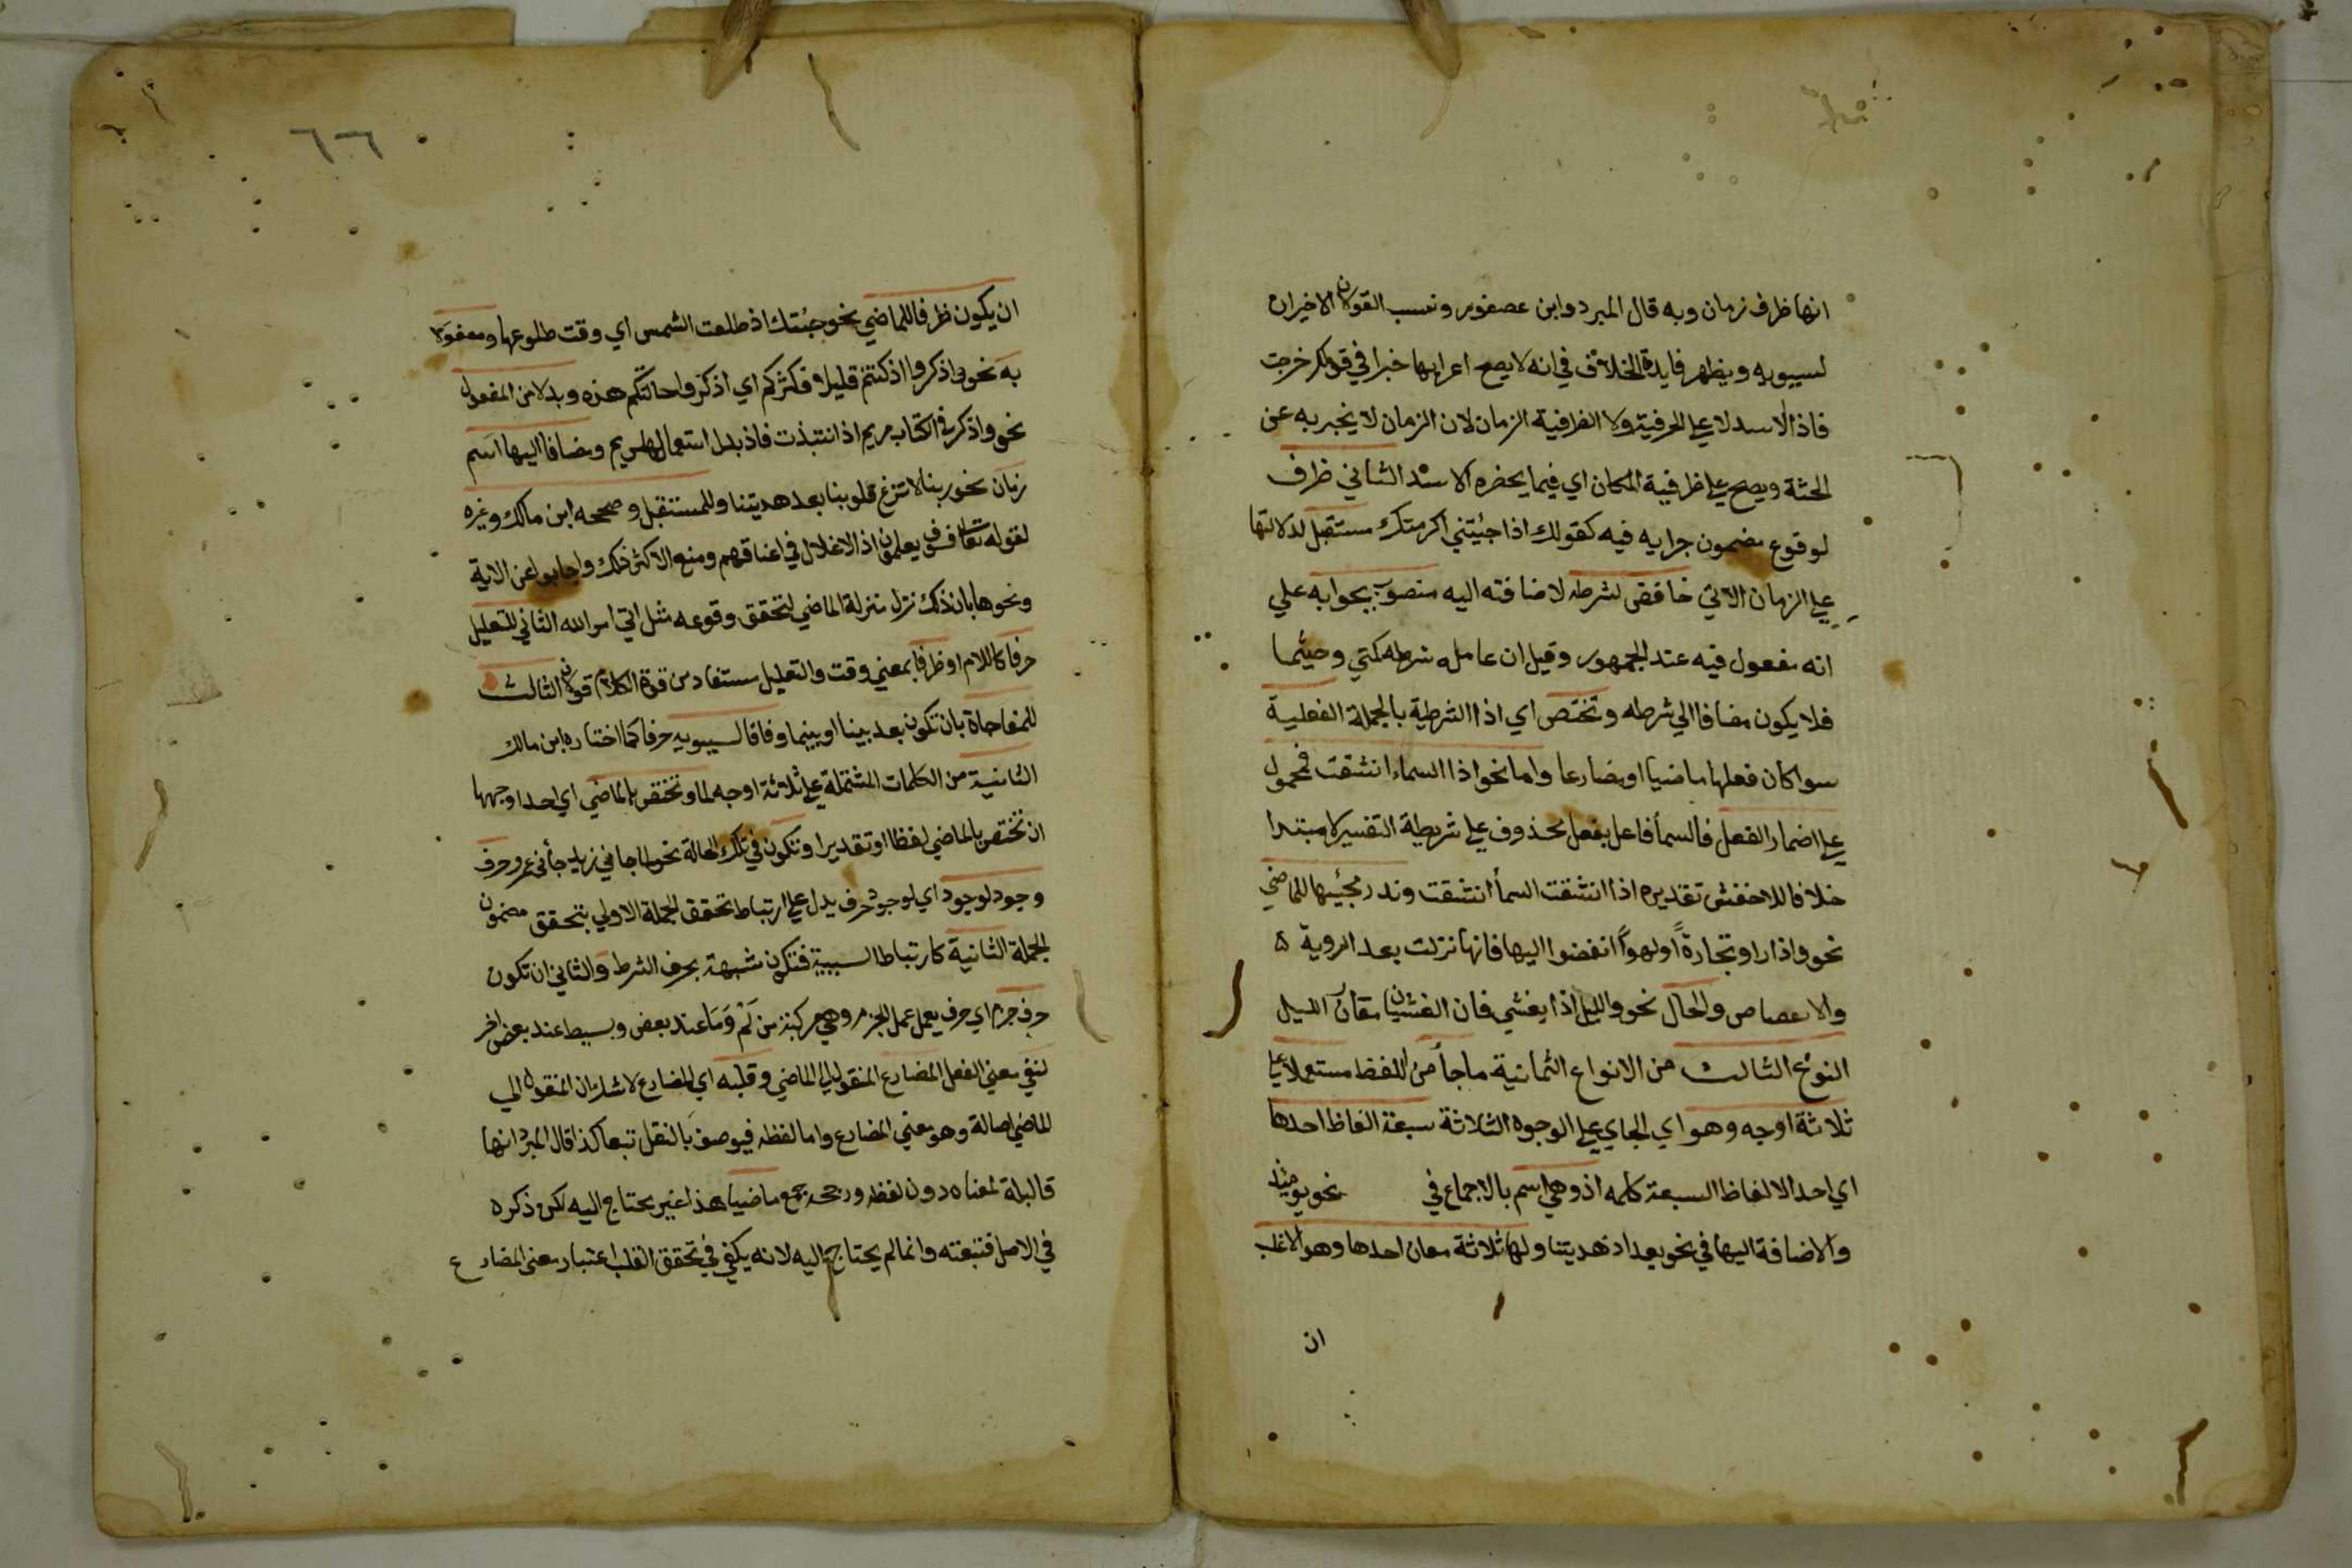 انها ظرف زمان وبه قال المبرد وابن عصفور ونسب القولان الاخيران
لسيبويه ويظهر فايدة الخلاف في انه لا يصح اعرابها خبرا في قولك خرجت
فاذا الاسد لا علي الحرفية ولا الظرفية الزمان لان الزمان لا يخبر به عن
الجثة ويصح علي ظرفية المكان اي فيما يحضره الاسد الثاني ظرف
لوقوع مضمون جزايه فيه كقولك اذا جئيتني اكرمتك مستقبل لدلالتها
علي الزمان الاتي خافض لشرطه لاضافته اليه منصوب بجوابه علي
انه مفعول فيه عند الجمهور وقيل ان عامله شرطه كمتي وحيثما
فلا يكون مضافا الي شرطه وتختص اي اذا الشرطية بالجملة الفعلية
سوا كان فعلها ماضيا او مضارعا واما نحو اذا السماء انشقت فمحمول
علي اضمار الفعل فالسمأ فاعل بفعل محذوف علي شريطة التفسير لا مبتدا
خلافا للاخفش تقديره اذا انشقت السمأ انشقت وندر مجئيها للماضي
نحو واذا راو تجارةً اولهواً انفضوا اليها فانها نزلت بعد الروية
والانفضاض وللحال نحو والليل اذا يغشي فان الغشيان مقارن الليل
النوع الثالث من الانواع الثمانية ماجأ من اللفظ مستعملا علي
ثلاثة اوجه وهو اي الجاي علي الوجوه الثلاثة سبعة الفاظ احدها
اي احد الالفاظ السبعة كلمه اذ وهي اسم بالاجماع في نحو يومئذ
والاضافة اليها في نحو بعد اذ هديتنا ولها ثلاثة معان احدها وهو الاغلب
ان
٦٦
ان يكون ظرفا للماضي نحو جئتك اذ طلعت الشمس اي وقت طلوعها ومفعولا
به نحو واذكروا اذ كنتم قليلا فكثركم اي اذكروا حالتكم هذه وبدلا من المفعول
نحو واذكر في الكتاب مريم اذ انتبذت فاذ بدل اشتمال لمريم ومضافا اليها اسم
زمان نحو ربنا لا تزغ قلوبنا بعد هديتنا وللمستقبل وصححه ابن مالك وغيره
لقوله تعا فسوف يعلمون اذ الاغلال في اعناقهم ومنع الاكثر ذلك واجابوا عن الاية
ونحوها بان ذلك نزل منزلة الماضي لتحقق وقوعه مثل اتي امر الله الثاني للتعليل
حرفا كاللام او ظرفا بمعني وقت والتعليل مستفاد من قوة الكلام قولان الثالث
للمفاجاة بان تكون بعد بينا او بينما وفاقا لسيبويه حرفا كما اختاره ابن مالك
الثانية من الكلمات المشتملة علي ثلاثة اوجه لما وتختص بالماضي اي احد اوجهها
ان تختص بالماضي لفظا او تقديرا وتكون في تلك الحالة نحو لما جاني زيد جأني عمرو حرف
وجود لوجود اي لوجود حرف يدل علي ارتباط تحقق الجملة الاولي بتحقق مضمون
الجملة الثانية كارتباط السببية فتكون شبيهة بحرف الشرط والثاني ان تكون
حرف جزم اي حرف يعمل عمل الجزم وهي مركبة من لَمْ وَمَا عند بعض وبسيط عند بعض اخر
لنفي معني الفعل المضارع المنقول الي الماضي وقلبه اي المضارع لاشك ان المنقول الي
الماضي اصالة وهو معني المضارع واما لفظه فيوصف بالنقل تبعا كذا قال المبرد انها
قالبلة لمعناه دون لفظه ورجحه جمع ماضيا هذا غير يحتاج اليه لكن ذكره
في الاصل فتبعته وانما لم يحتاج اليه لانه يكفي في تحقق القلب اعتبار معني المضارع